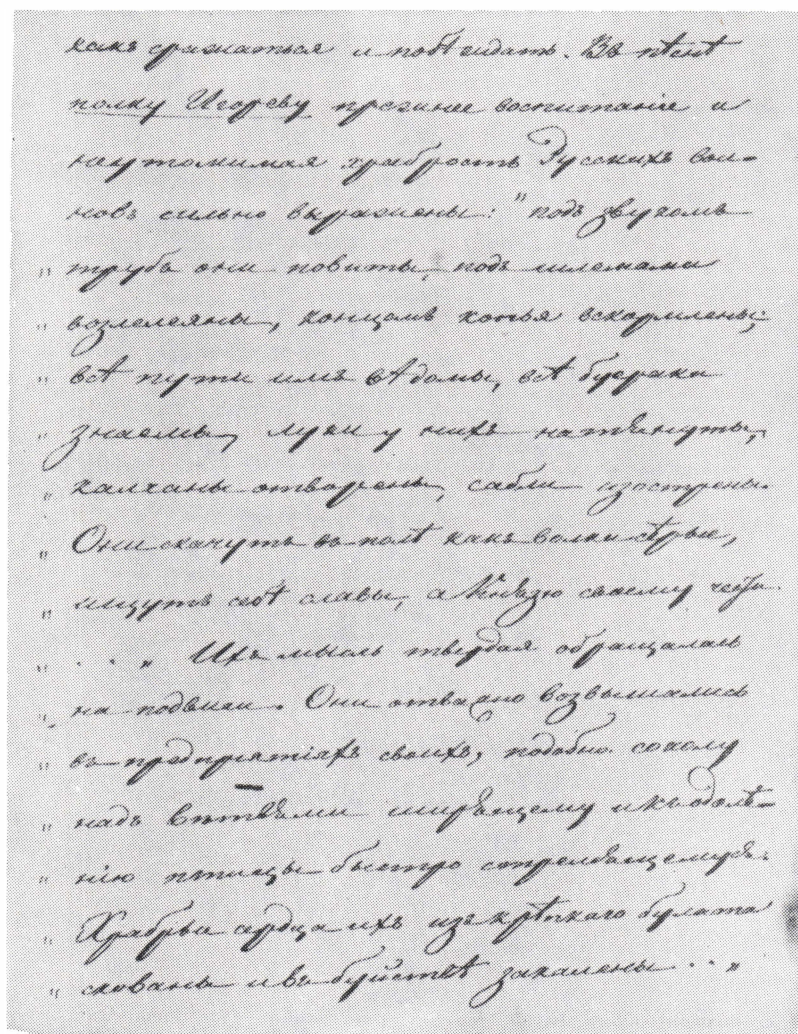 какъ сражаться и побѣждать. Въ пѣснѣ
полку Игореву прежнее воспитаніе и
неутомимая храбрость Русскихъ вои-
новъ сильно выражены: "подъ звукомъ
" трубъ они повиты, подъ шлемами
" возлелеяны, концомъ копья вскормлены;
" всѣ пути имъ вѣдомы, всѣ буераки
" знаемы, луки у нихъ натянуты,
" калчаны отворены, сабли изострены.
" Они скачутъ въ полѣ какъ волки сѣрые,
" ищутъ себѣ славы, а Князю своему чести.
" . . „ Ихъ мысль твердая обращалась
" на подвиги. Они отважно возвышались
" въ предпріятіяхъ своихъ, подобно соколу
" надъ вѣтвями ширящему и къ одолѣ-
" нію птицы быстро стремящемуся.
" Храбрыя сердца ихъ изъ крѣпкаго булата
" скованы и въ буйствѣ закалены . . „